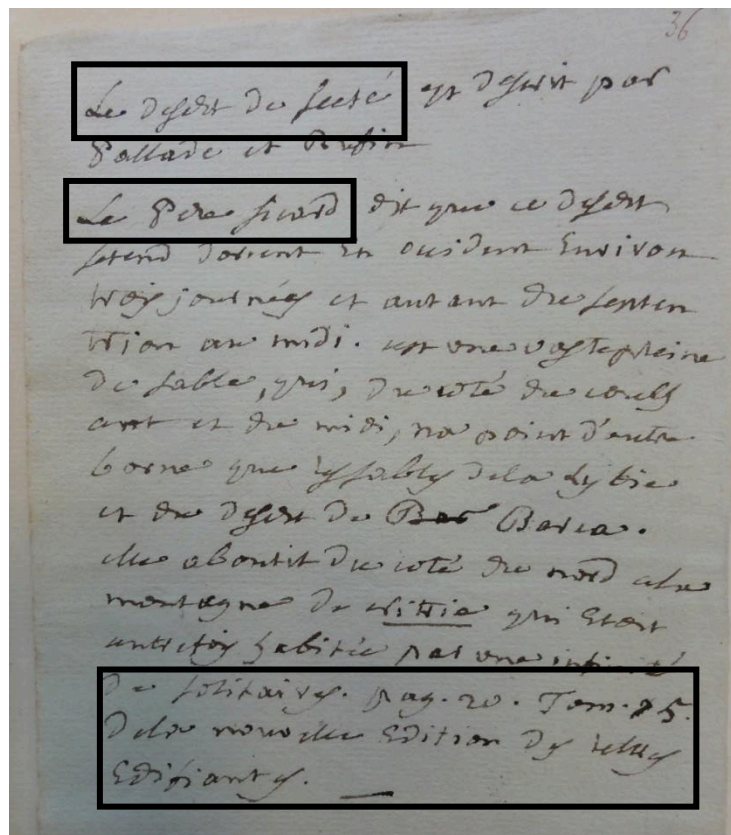 36
Le desert de sceté est descrit par
Pallade et Rufin
Le Pere sicard dit que ce desert
setend dorient en occident Environ
trois journées et autant du septen
trion au midi. cest une vaste pleine
de sable, qui, du coté du couch
ant et du midi, na point d'autre
borne que les sables dela Lybie
et du desert de Bar Barca.
elle aboutit du coté du nord a la
montagne de nittrie qui Etoit
autrefois habitée par une infinité
de solitaires. pag. 20. Tom. 5.
dela nouvelle Edition des lettres
Edifiantes.